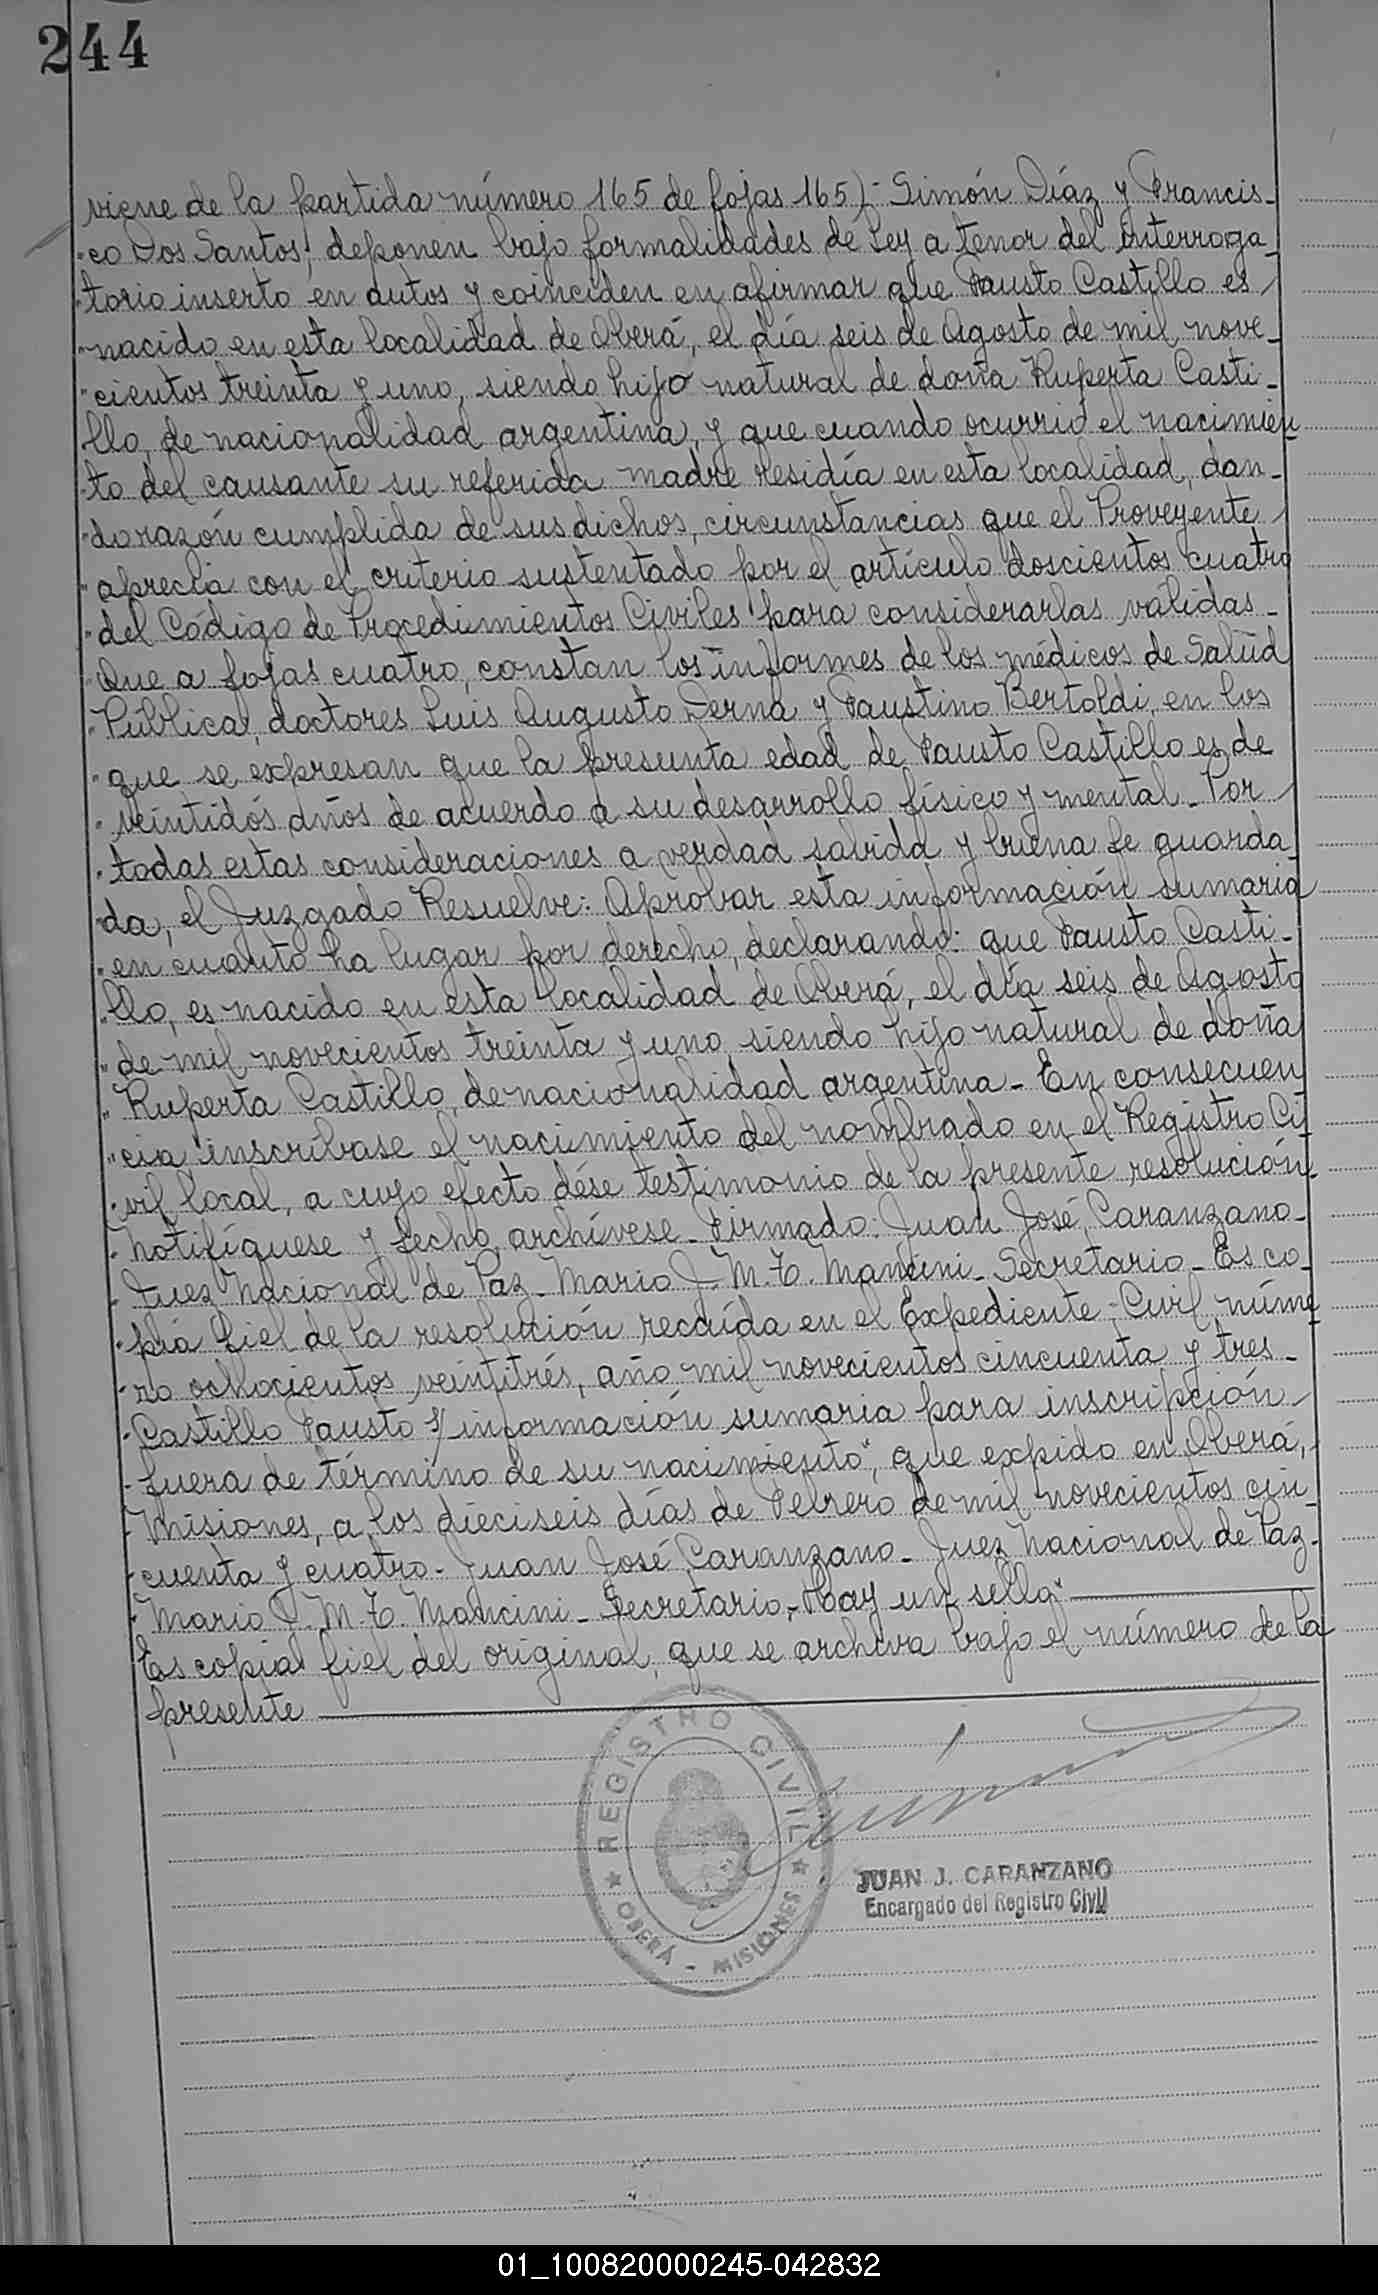 244
viene de la partida número 165 de fojas 165).- Simón Díaz y Francis-
"co Dos Santos, deponen bajo formalidades de Ley a tenor del interroga_
"torio inserto en autos y coinciden en afirmar que Fausto Castillo es
"nacido en esta localidad de Oberá, el día seis de Agosto de mil nove_
"cientos treinta y uno, siendo hijo natural de doña Ruperta Casti_
llo, de nacionalidad argentina, y que cuando ocurrió el nacimien
"to del causante su referida madre residía en esta localidad, dan_
"do razón cumplida de sus dichos, circunstancias que el Proveyente
"aprecia con el criterio sustentado por el artículo doscientos cuatro
"del Código de Procedimientos Civiles para considerarlas válidas_
"Que a fojas cuatro, constan los informes de los médicos de Salud
"Pública, doctores Luis Augusto Derna y Faustino Bertoldi, en los
"que se expresan que la presunta edad de Fausto Castillo es de
"veintidós años de acuerdo a su desarrollo físico y mental_ Por
"todas estas consideraciones a verdad sabida y buena fe guarda_
"da, el Juzgado Resuelve: Aprobar esta información sumaria
"en cuanto ha lugar por derecho, declarando: que Fausto Casti_
"llo, es nacido en esta localidad de Oberá, el día seis de Agosto
"de mil novecientos treinta y uno, siendo hijo natural de doña
"Ruperta Castillo, de nacionalidad argentina_ En consecuen
"cia inscríbase el nacimiento del nombrado en el Registro Ci
"vil local, a cuyo efecto dése testimonio de la presente resolución_
"notifíquese y fecho, archívese_ Firmado: Juan José Caranzano_
"Juez Nacional de Paz_ Mario J. M. T. Mancini_ Secretario_ Es co_
"pia fiel de la resolución recaída en el Expediente Civil núme
"ro ochocientos veintitrés, año mil novecientos cincuenta y tres_
"Castillo Fausto s/ información sumaria para inscripción
"fuera de término de su nacimiento", que expido en Oberá,
"Misiones, a los dieciseis días de Febrero de mil novecientos cin_
"cuenta y cuatro_ Juan José Caranzano_ Juez Nacional de Paz_
"Mario J. M. T. Mancini_ Secretario_ Hay un sello"
Es copia fiel del original, que se archiva bajo el número de la
presente
REGISTRO CIVIL
OBERÁ - MISIONES
JUAN J. CARANZANO
Encargado del Registro Civil
01_100820000245-042832